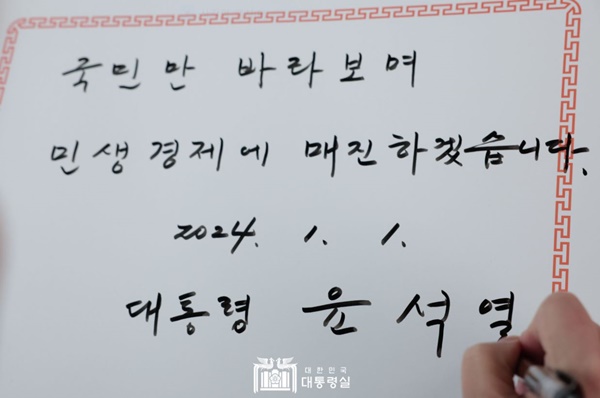 국민만 바라보며
민생경제에 매진하겠습니다.
2024. 1. 1.
대통령 윤석열
대한민국
대통령실